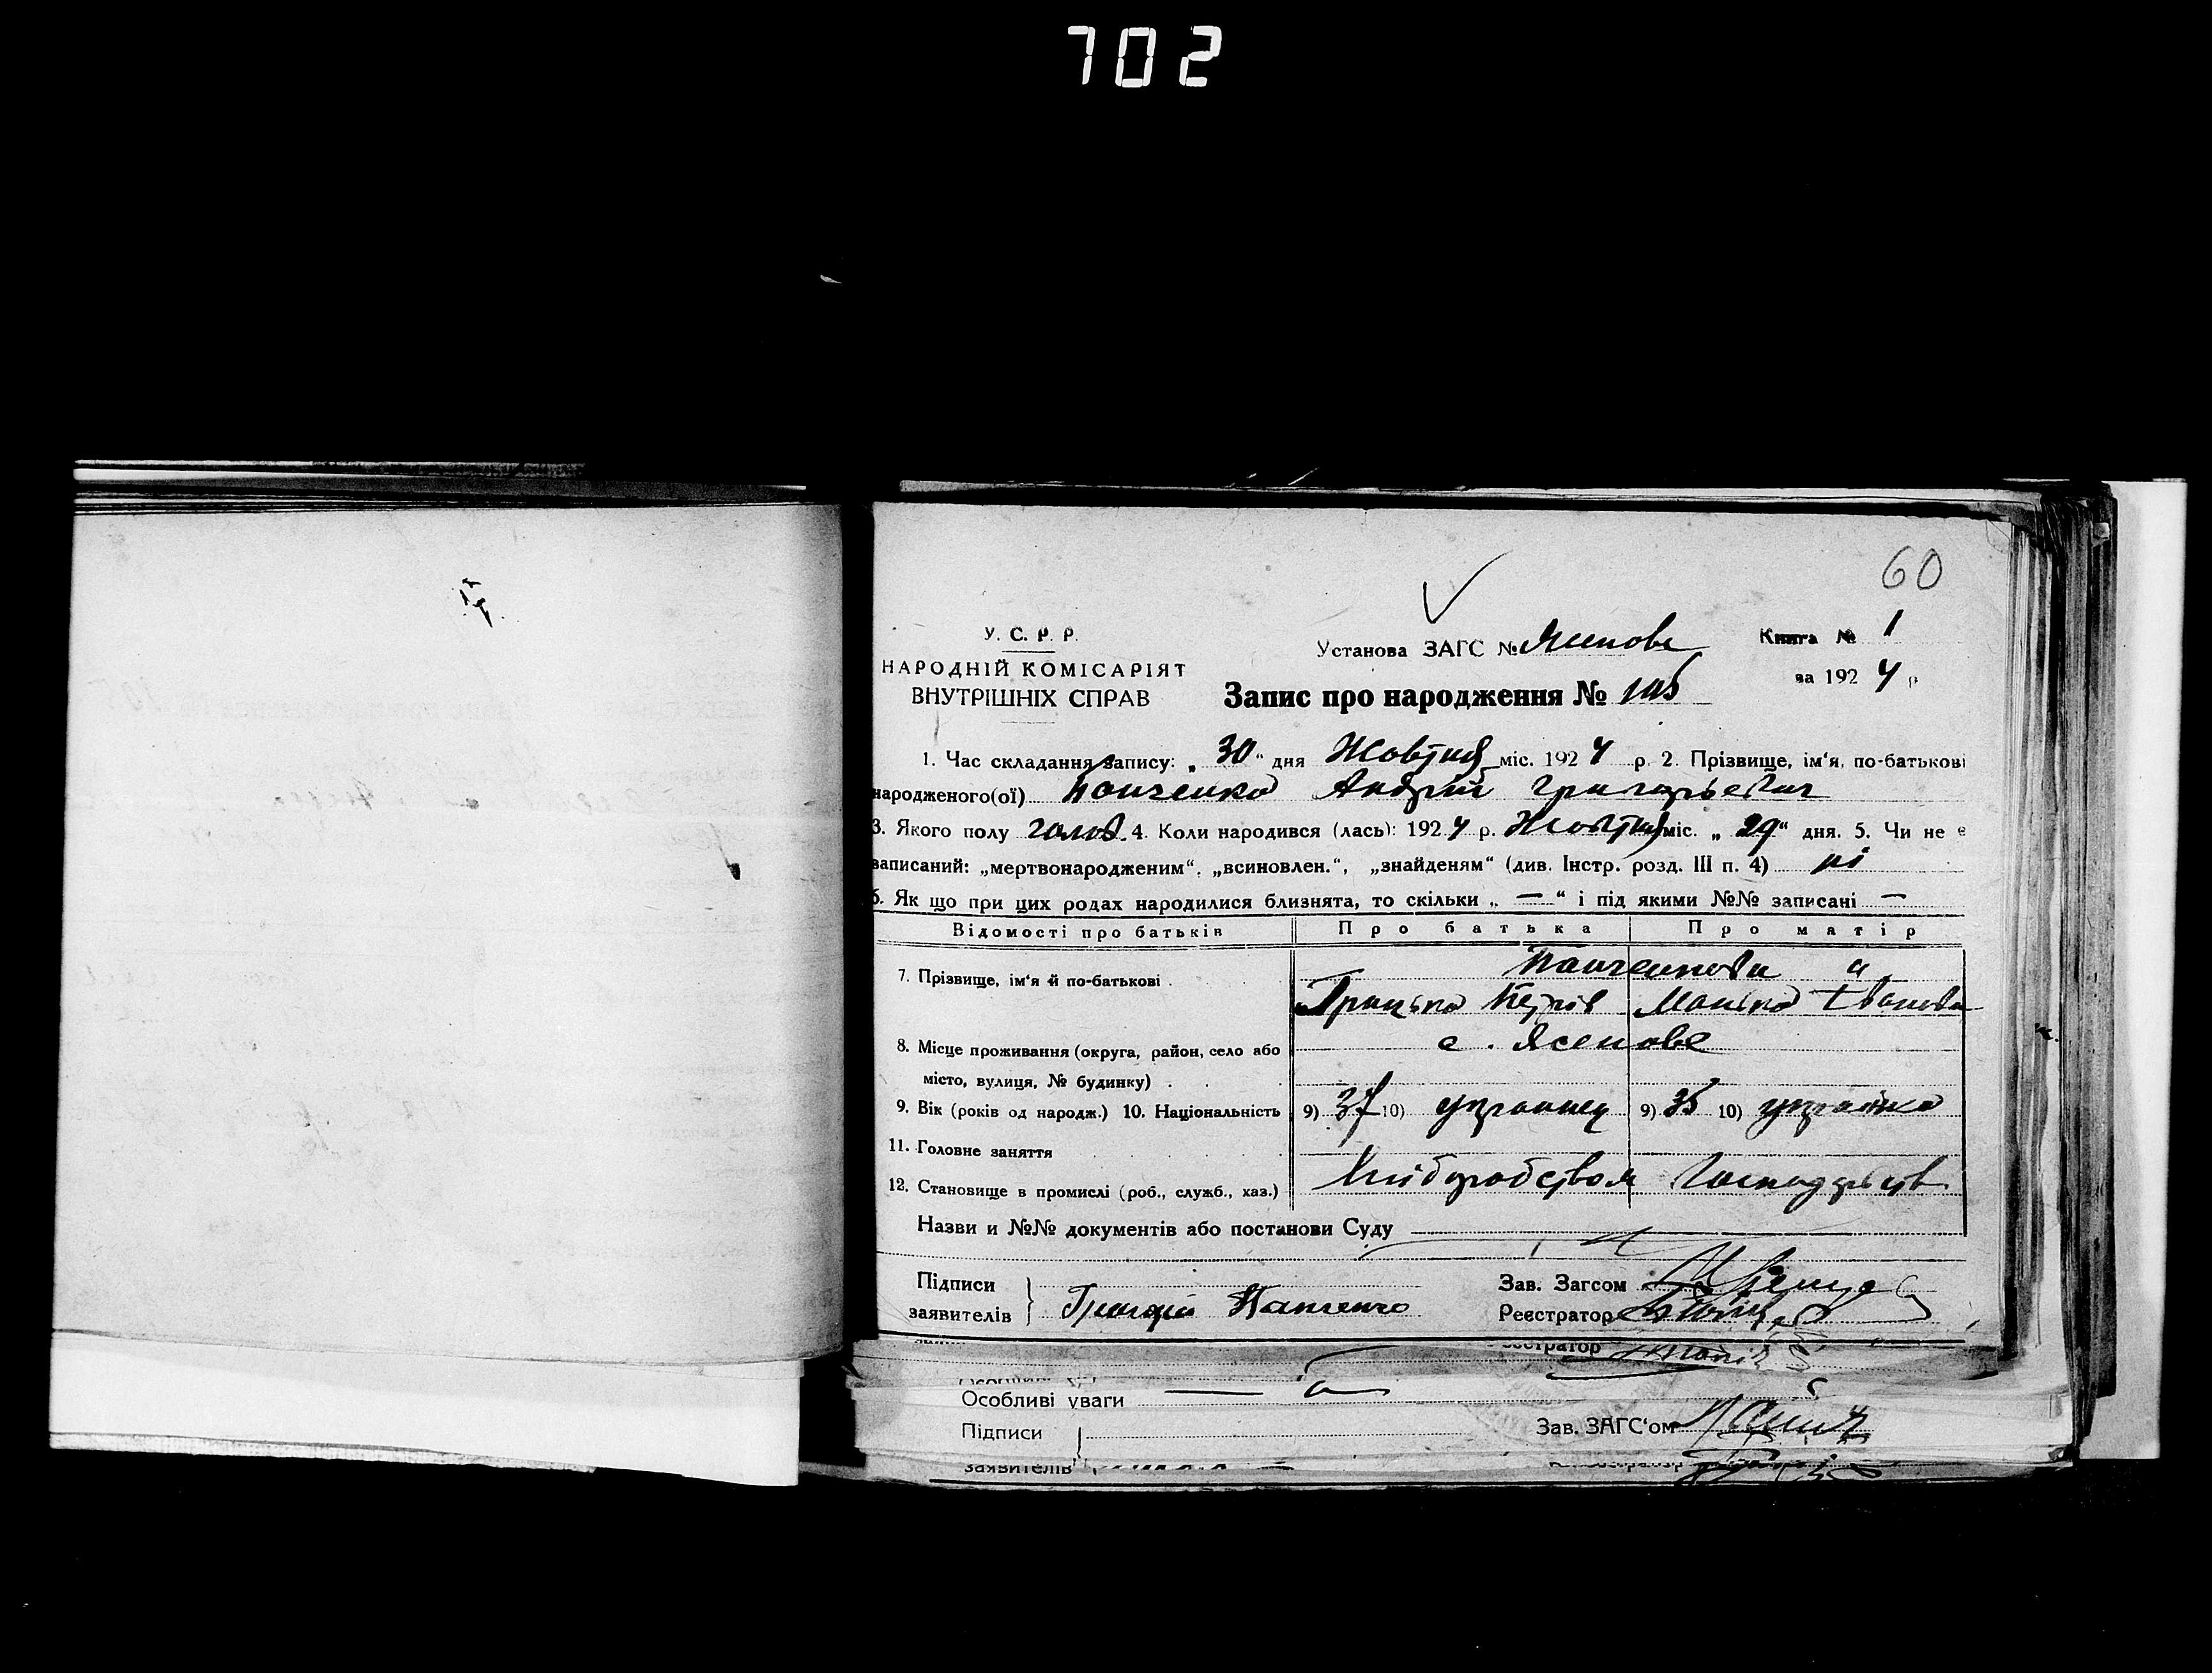 702
60
У. С. Р. Р.
НАРОДНІЙ КОМІСАРІЯТ
ВНУТРІШНІХ СПРАВ
Установа ЗАГС №
Книга № 1
за 1924 р
Запис про народження № 105
1. Час складання запису: „ 30 “ дня Жовтня міс. 1924 р. 2. Прізвище, ім‘я, по-батькові
народженого(ої) Панченко Андрій Григорьевич
3. Якого полу чолов. 4. Коли народився (лась): 1924 р. Жовтня міс. „ 29 “ дня. 5. Чи не є
записаний: „мертвонародженим“, „всиновлен.“, „знайденям“ (див. Інстр. розд. III п. 4) ні
6. Як що при цих родах народилися близнята, то скільки „ — “ і під якими №№ записані —
Відомості про батьків Про батька Про матір
7. Прізвище, ім‘я й по-батькові
Панченкови
Грицько Петров Манька Іванова
8. Місце проживання (округа, район, село або
місто, вулиця, № будинку)
с. Ясенове
9. Вік (років од народж.) 10. Національність 9) 37 10) украинец 9) 35 10) украінка
11. Головне заняття
12. Становище в промислі (роб., служб., хаз.)
Хліборобством
Назви и №№ документів або постанови Суду
Підписи
заявителів
Григорій Панченко
Зав. Загсом
Реєстратор
еєстратор
Особливі уваги
Підписи
Зав. ЗАГС‘ом
заявителів